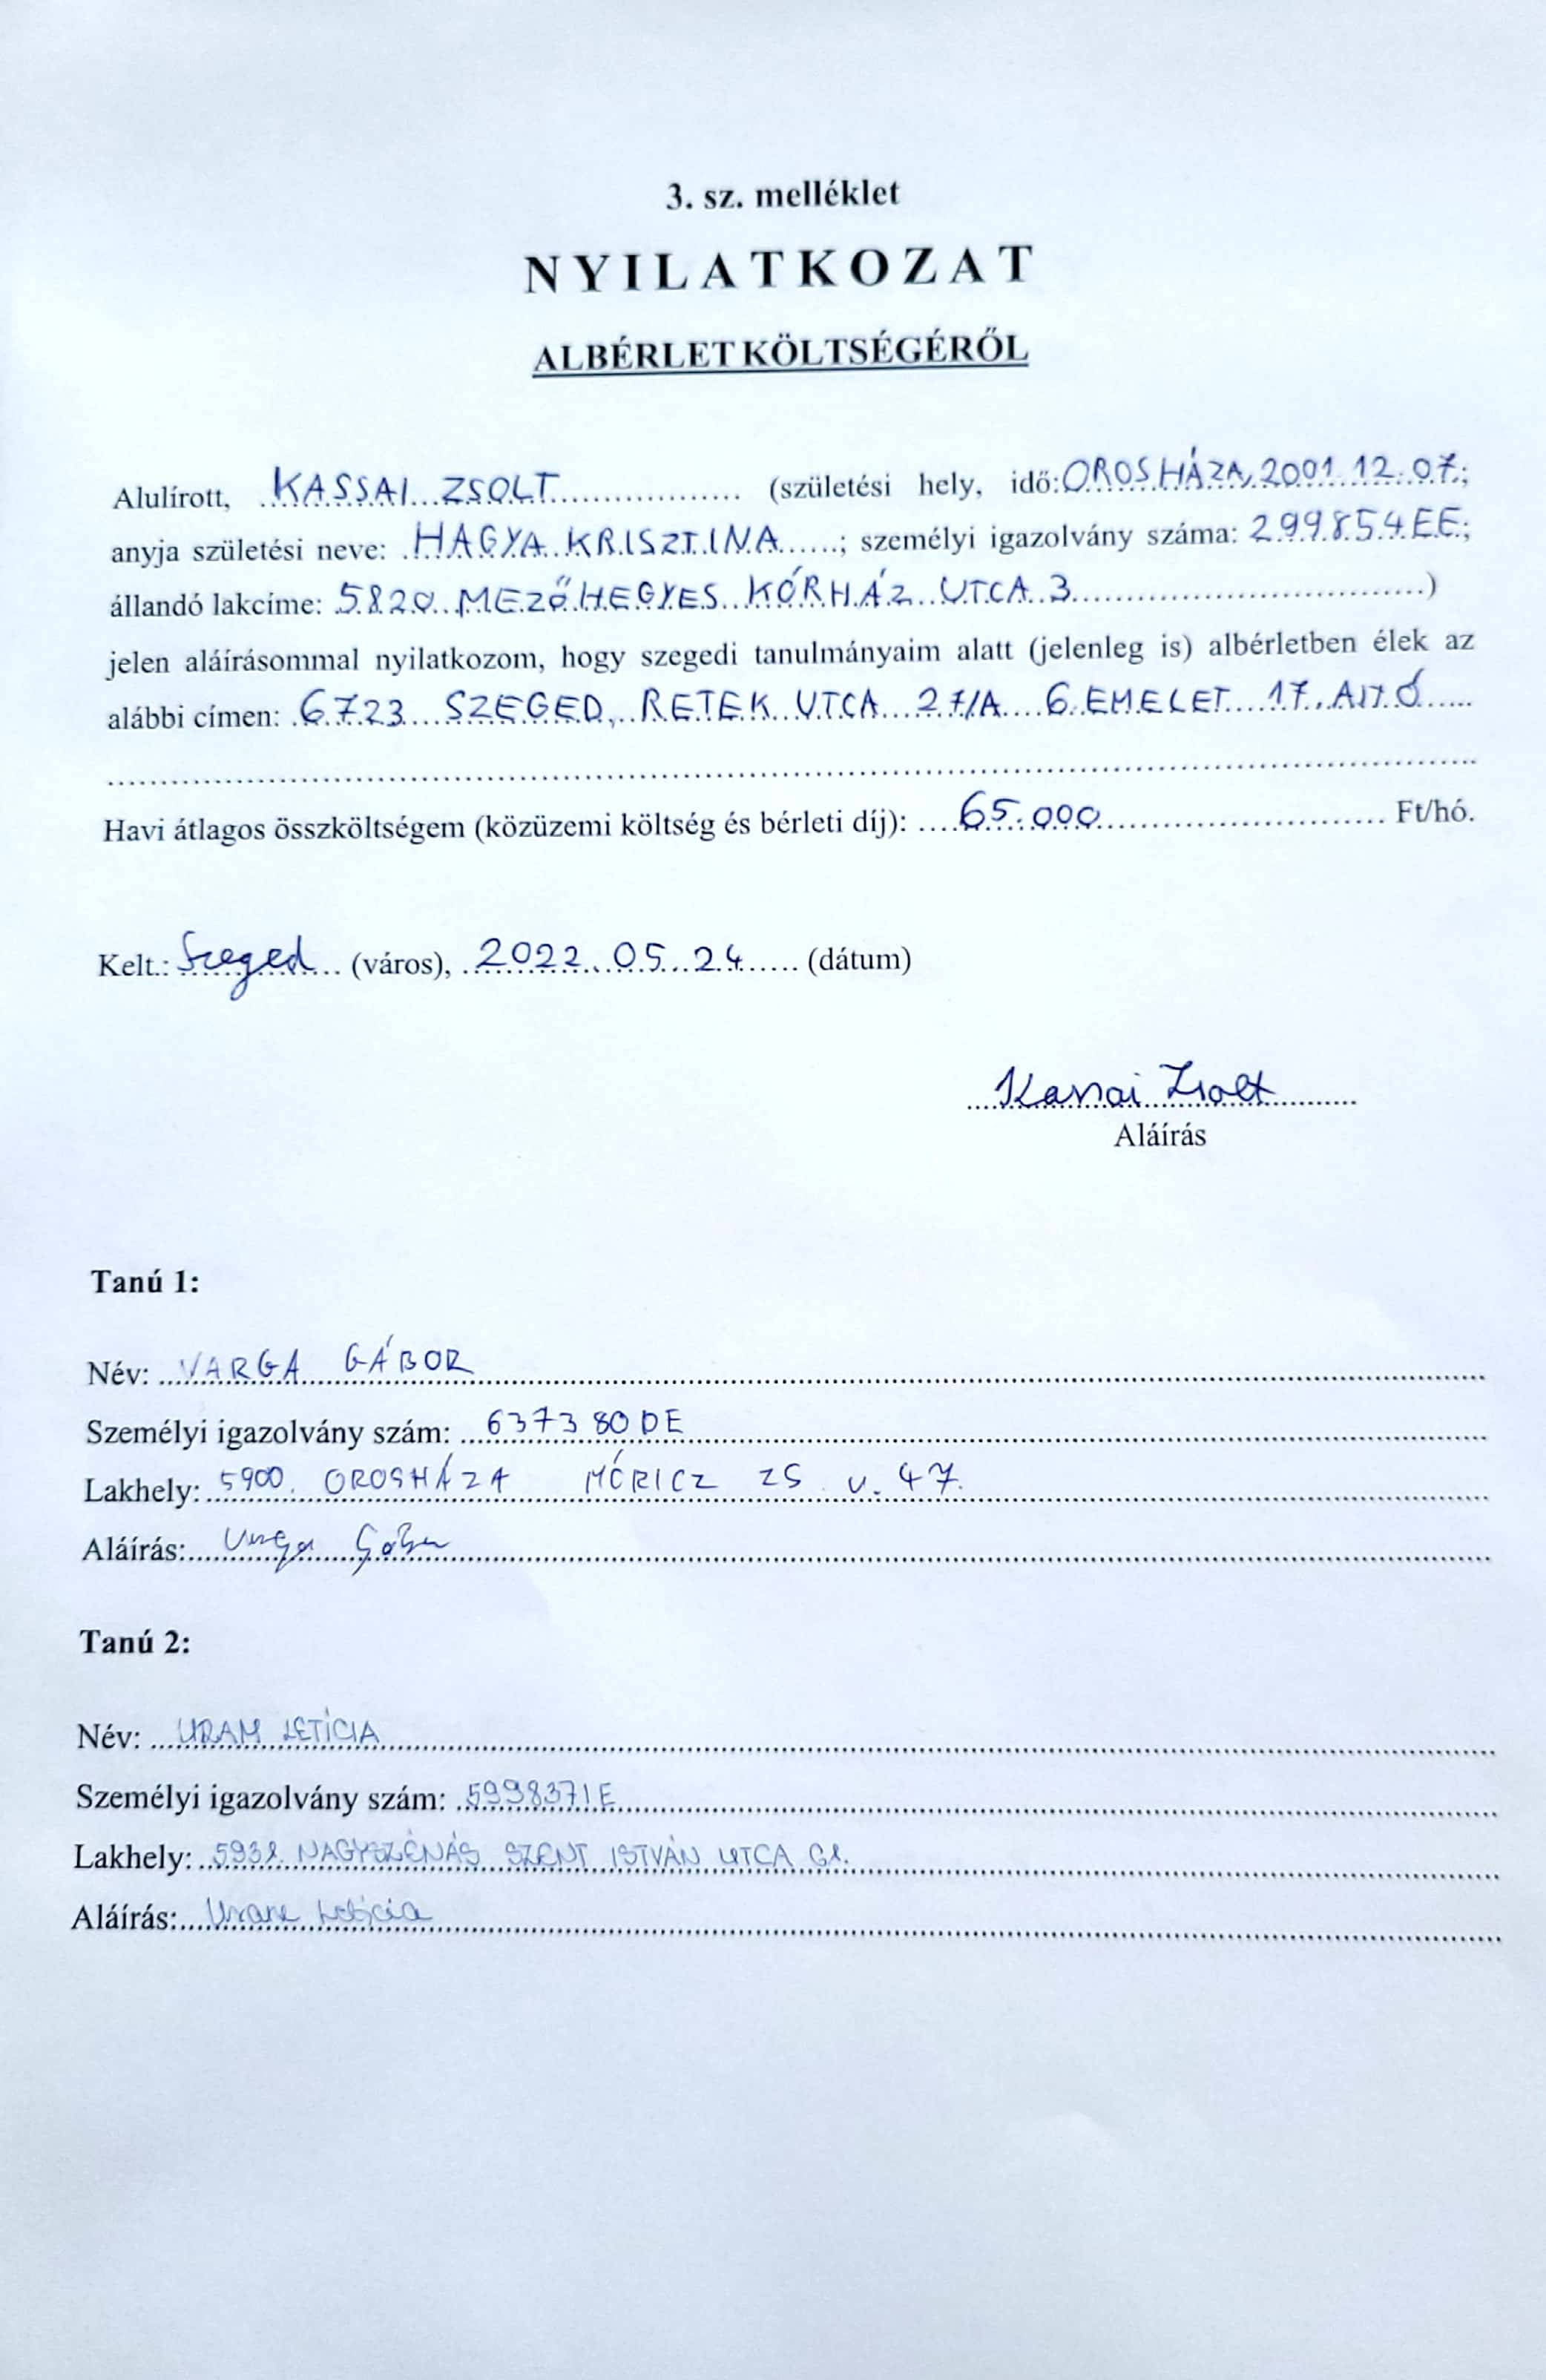 3. sz. melléklet
NYILATKOZAT
ALBÉRLET KÖLTSÉGÉRŐL
Alulírott, KASSAI ZSOLT (születési hely, idő: OROSHÁZA, 2001. 12. 07.;
anyja születési neve: HAGYA KRISZTINA; személyi igazolvány száma: 299854EE;
állandó lakcíme: 5820 MEZŐHEGYES KÓRHÁZ UTCA 3)
jelen aláírásommal nyilatkozom, hogy szegedi tanulmányaim alatt (jelenleg is) albérletben élek az
alábbi címen: 6723 SZEGED, RETEK UTCA 27/A 6. EMELET 17. AJTÓ
Havi átlagos összköltségem (közüzemi költség és bérleti díj): 65.000 Ft/hó.
Kelt.: Szeged (város), 2022. 05. 24 (dátum)
Kassai Zsolt
Aláírás
Tanú 1:
Név: VARGA GÁBOR
Személyi igazolvány szám: 637380DE
Lakhely: 5900. OROSHÁZA MÓRICZ ZS u. 47.
Aláírás: Varga Gábor
Tanú 2:
Név: URAM LETÍCIA
Személyi igazolvány szám: 599837IE
Lakhely: 5931. NAGYSZÉNÁS SZENT ISTVÁN UTCA
Aláírás: Uram Letícia